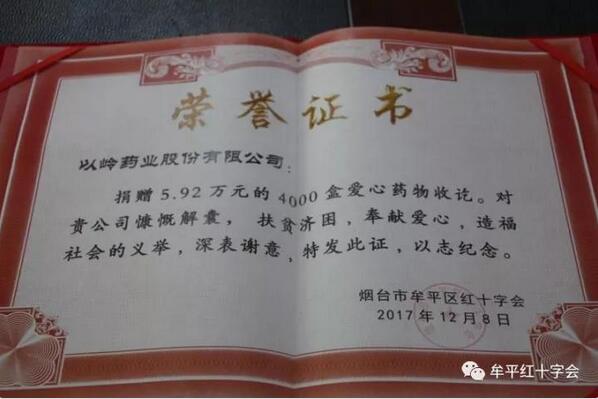 荣誉证书
以岭药业股份有限公司:
捐赠 5.92 万元的 4000 盒爱心药物收讫。对
贵公司慷慨解囊，扶贫济困，奉献爱心，造福
社会的义举，深表谢意，特发此证，以志纪念。
烟台市牟平区红十字会
2017 年 12 月 8 日
牟平红十字会